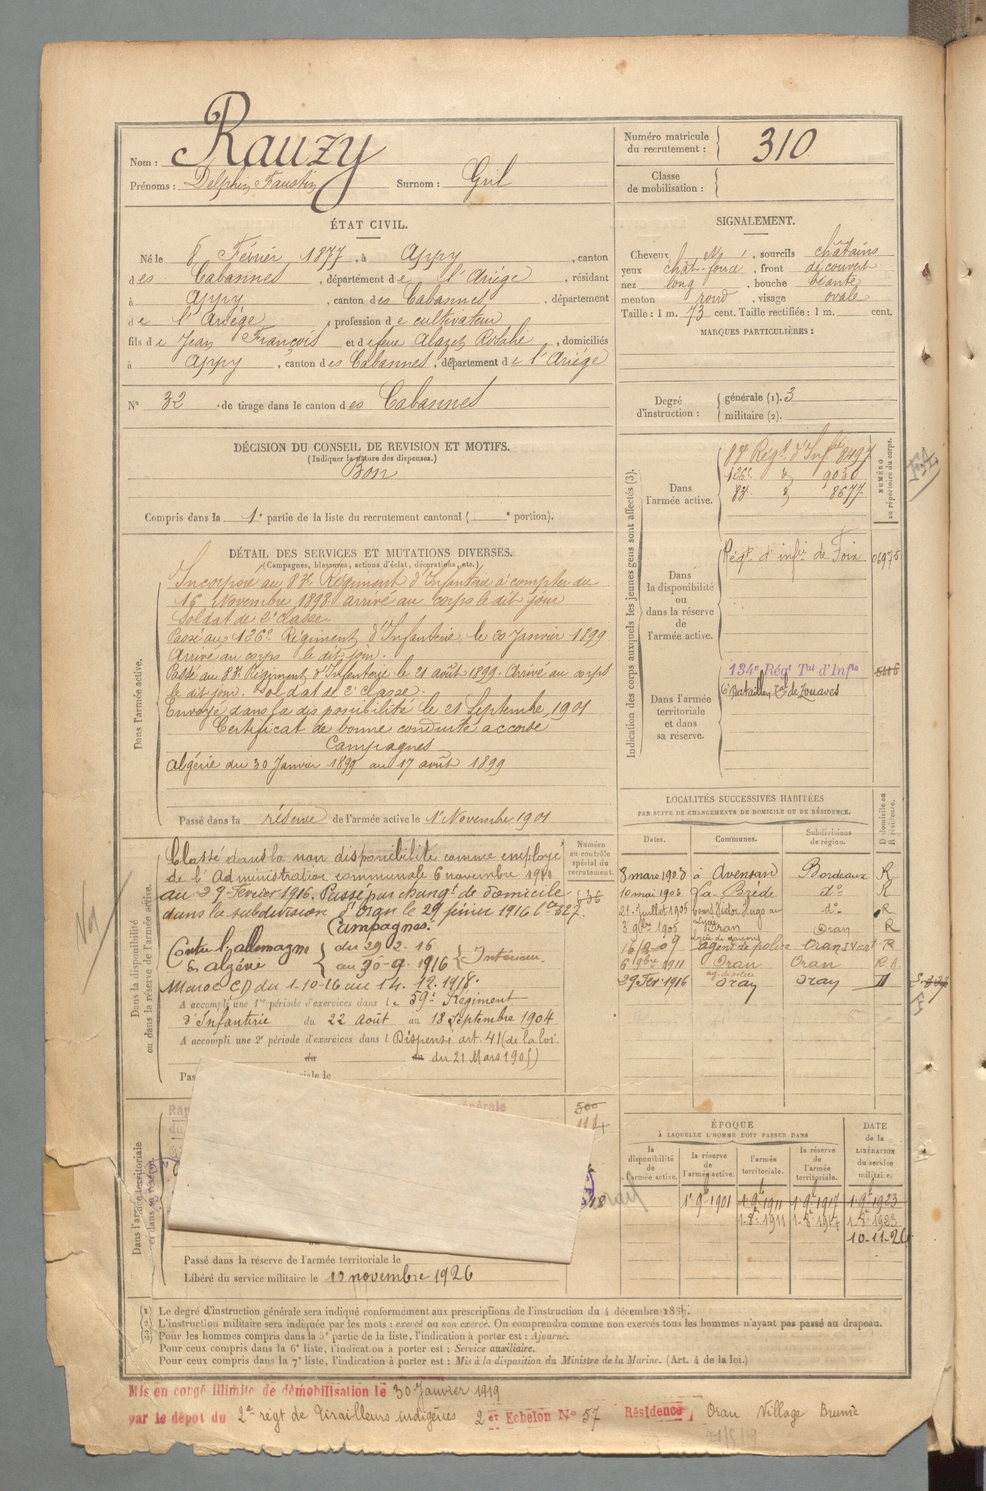 Nom : Rauzy
Prénoms : Delphin, Faustin Surnom : Gril
Numéro matricule du recrutement : 310
Classe de mobilisation :
ÉTAT CIVIL.
Né le 8 Février 1877, à Appy, canton
des Cabannes, département de l'Ariége, résidant
à Appy, canton des Cabannes, département
de l'Ariége, profession de cultivateur
fils de Jean François et de feue Alazet Rosalie, domiciliés
à Appy, canton des Cabannes, département de l'Ariége
N° 32 de tirage dans le canton des Cabannes
SIGNALEMENT.
Cheveux sourcils châtains
yeux chât. foncé, front découvert
nez long, bouche béante
menton rond, visage ovale
Taille : 1 m. 73 cent. Taille rectifiée : 1 m. cent.
MARQUES PARTICULIÈRES :
Degré d'instruction : générale (1). 3
militaire (2).
DÉCISION DU CONSEIL DE REVISION ET MOTIFS.
(Indiquer la nature des dispenses.)
Bon
Compris dans la 1e partie de la liste du recrutement cantonal ( e portion).
DÉTAIL DES SERVICES ET MUTATIONS DIVERSES.
(Campagnes, blessures, actions d'éclat, décorations, etc.)
Dans l'armée active.
Incorporé au Régiment d'Infanterie à compter du
16 Novembre 1898 arrivé au corps le dit jour
soldat de 2e classe.
Passé au 126e Régiment d'Infanterie, le 20 Janvier 1899
Arrivé au corps le dit jour.
Passé au Régiment d'Infanterie le 21 août 1899. Arrivé au corps
le dit jour. soldat de 2e classe.
Envoyé dans la disponibilité le 21 Septembre 1901
Certificat de bonne conduite accordé
Campagnes
Algérie du 30 Janvier 1899 au 17 août 1899
Passé dans la réserve de l'armée active le 1er Novembre 1901
Indication des corps auxquels les jeunes gens sont affectés (3).
NUMÉRO au répertoire du corps.
Dans l'armée active.
Régt d'Infie
126e 9030
8677
Dans la disponibilité ou dans la réserve de l'armée active.
Régt d'infie de Foix
Dans l'armée territoriale et dans sa réserve.
134e Régt Tal d'Infie
6e Bataillon Tal de Zouaves
LOCALITÉS SUCCESSIVES HABITÉES
PAR SUITE DE CHANGEMENTS DE DOMICILE OU DE RÉSIDENCE.
Dates. Communes. Subdivisions de région. D domicile ou R résidence.
8 mars 1903 à Avensan Bordeaux R
10 mai 1903 La Brède do R
21 Juillet 1905 do R
3 9bre 1905 Oran Oran R
agent de police Oran R
6 9bre 1911 Oran Oran
29 Fév 1916 Oran Oran
Dans la disponibilité ou dans la réserve de l'armée active.
Numéro au contrôle spécial du recrutement.
Classé dans la non disponibilité comme employé
de l'Administration communale 6 novembre
au 29 Février 1916. Passé par changt de domicile
dans la subdivision d'Oran le 29 février 1916
Campagnes
Contre l'allemagne du 29-2-16
En algérie au 30-9-1916 Intérieur.
Maroc du 1-10-16 au 14.12.1918.
A accompli une 1re période d'exercices dans le 59e Régiment
d'Infanterie du 22 Août au 18 Septembre 1904
A accompli une 2e période d'exercices dans l Dispensé art. 41 (de la loi
du du du 21 Mars 1905)
Dans l'armée territoriale et dans sa réserve.
500
114
Passé dans la réserve de l'armée territoriale le
Libéré du service militaire le 10 novembre 1926
ÉPOQUE
À LAQUELLE L'HOMME DOIT PASSER DANS
la disponibilité de l'armée active. la réserve de l'armée active. l'armée territoriale. la réserve de l'armée territoriale.
DATE de la LIBÉRATION du service militaire.
1er 9bre 1901 1er 9bre 1911 1er 9bre 1917 1er 9bre 1923
10-11-26
(1) Le degré d'instruction générale sera indiqué conformément aux prescriptions de l'instruction du 4 décembre
(2) L'instruction militaire sera indiquée par les mots : exercé ou non exercé. On comprendra comme non exercés tous les hommes n'ayant pas passé au drapeau.
(3) Pour les hommes compris dans la 5e partie de la liste, l'indication à porter est : Ajourné.
Pour ceux compris dans la 6e liste, l'indication à porter est : Service auxiliaire.
Pour ceux compris dans la 7e liste, l'indication à porter est : Mis à la disposition du Ministre de la Marine. (Art. 4 de la loi.)
Mis en congé illimité de démobilisation le 30 Janvier 1919
par le dépot du 2e régt de Tirailleurs indigènes 2e Echelon N° 57 Résidence, Oran Village